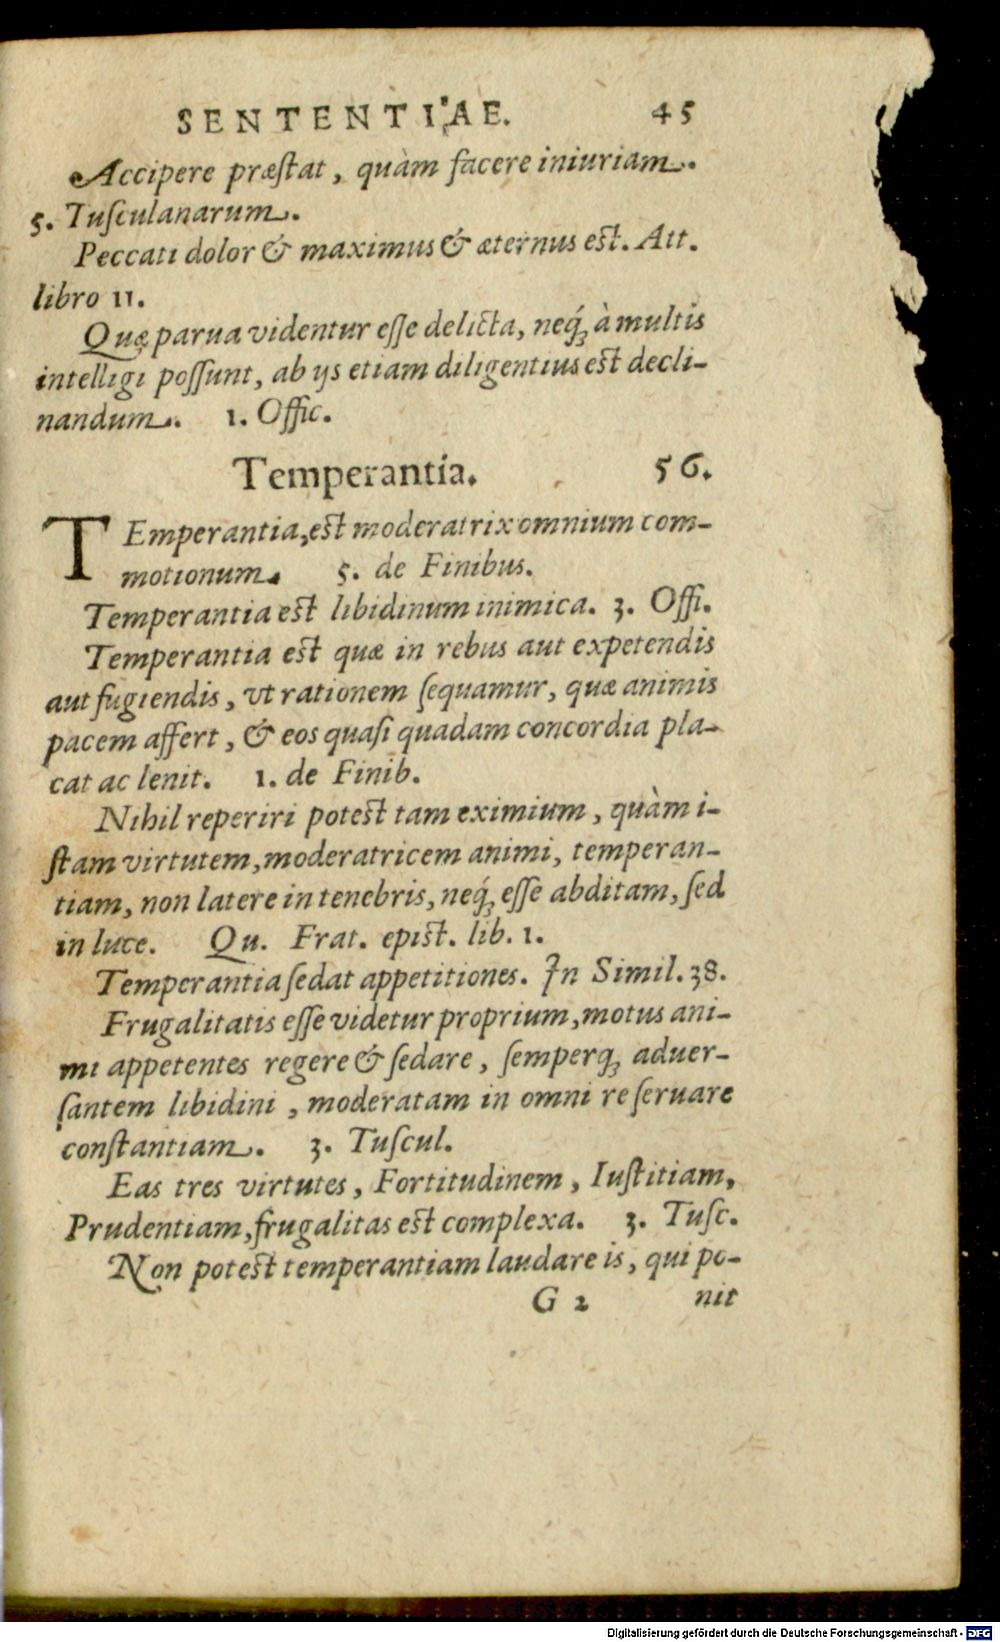 SENTENTIAE. 45
Accipere præſtat, quàm facere iniuriam.
5. Tuſculanarum.
Peccati dolor & maximus & æternus est. Att.
libro 11.
Quę parua videntur eſſe delicta, neq́; à multis
intelligi poſſunt, ab ijs etiam diligentius est decli-
nandum. 1. Offic.
Temperantia. 56.
TEmperantia, est moderatrix omnium com-
motionum. 5. de Finibus.
Temperantia est libidinum inimica. 3. Offi.
Temperantia est quæ in rebus aut expetendis
aut fugiendis, vt rationem ſequamur, quæ animis
pacem affert, & eos quaſi quadam concordia pla-
cat ac lenit. 1. de Finib.
Nihil reperiri potest tam eximium, quàm i-
ſtam virtutem, moderatricem animi, temperan-
tiam, non latere in tenebris, neq́; eſſe abditam, ſed
in luce. Qu. Frat. epist. lib. 1.
Temperantia ſedat appetitiones. In Simil. 38.
Frugalitatis eſſe videtur proprium, motus ani-
mi appetentes regere & ſedare, ſemperq; aduer-
ſantem libidini, moderatam in omni re ſeruare
conſtantiam. 3. Tuſcul.
Eas tres virtutes, Fortitudinem, Iuſtitiam,
Prudentiam, frugalitas est complexa. 3. Tuſc.
Non potest temperantiam laudare is, qui po-
G 2 nit
Digitalisierung gefördert durch die Deutsche Forschungsgemeinschaft - DFG